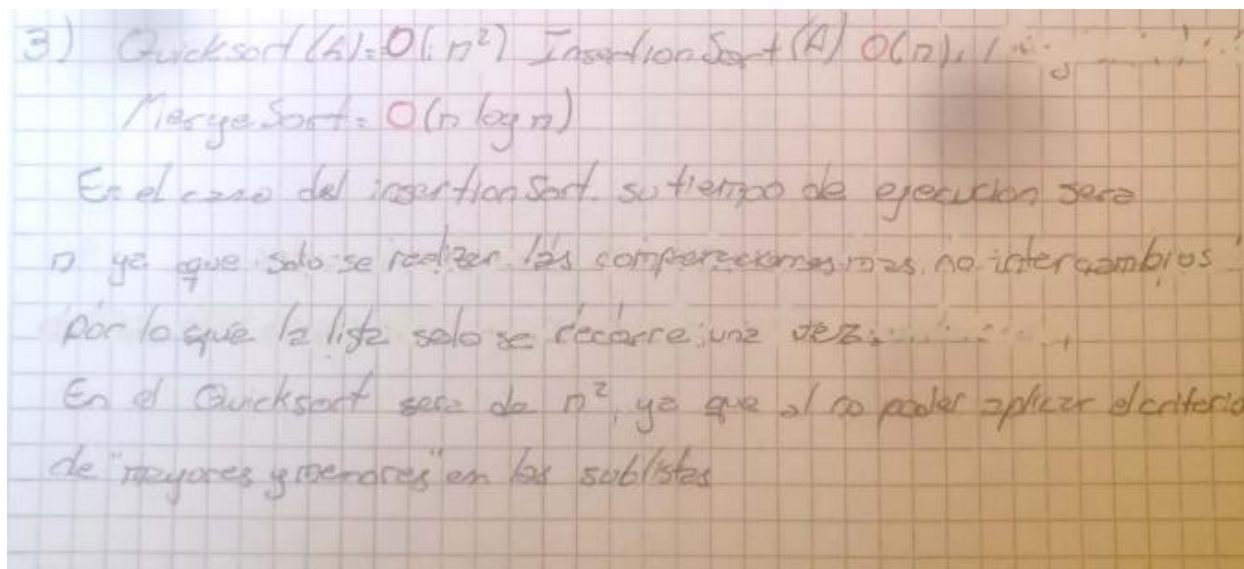 3) Quicksort (A) = O(n²) InsertionSort (A) O(n)
MergeSort = O(n log n)
En el caso del insertionSort su tiempo de ejecucion sera
n ya que solo se realizan las comparaciones mas no intercambios
por lo que la lista solo se recorre una vez
En el Quicksort sera de n², ya que al no poder aplicar el criterio
de "mayores y menores" en las sublistas